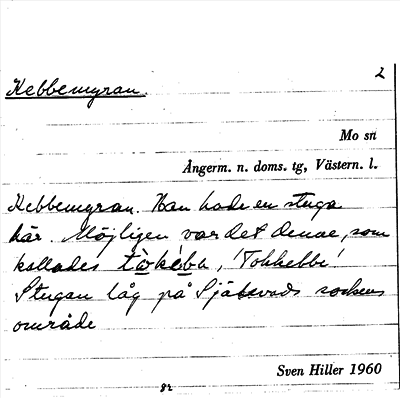 2
Kebbemyran.
Mo sn
Ångerm. n. doms. tg, Västern. l.
Kebbemyran. Han hade en stuga
här. Möjligen var det denne, som
kallades 'Tokkebbe'
Stugan låg på Själevads sockens
område
Sven Hiller 1960
82